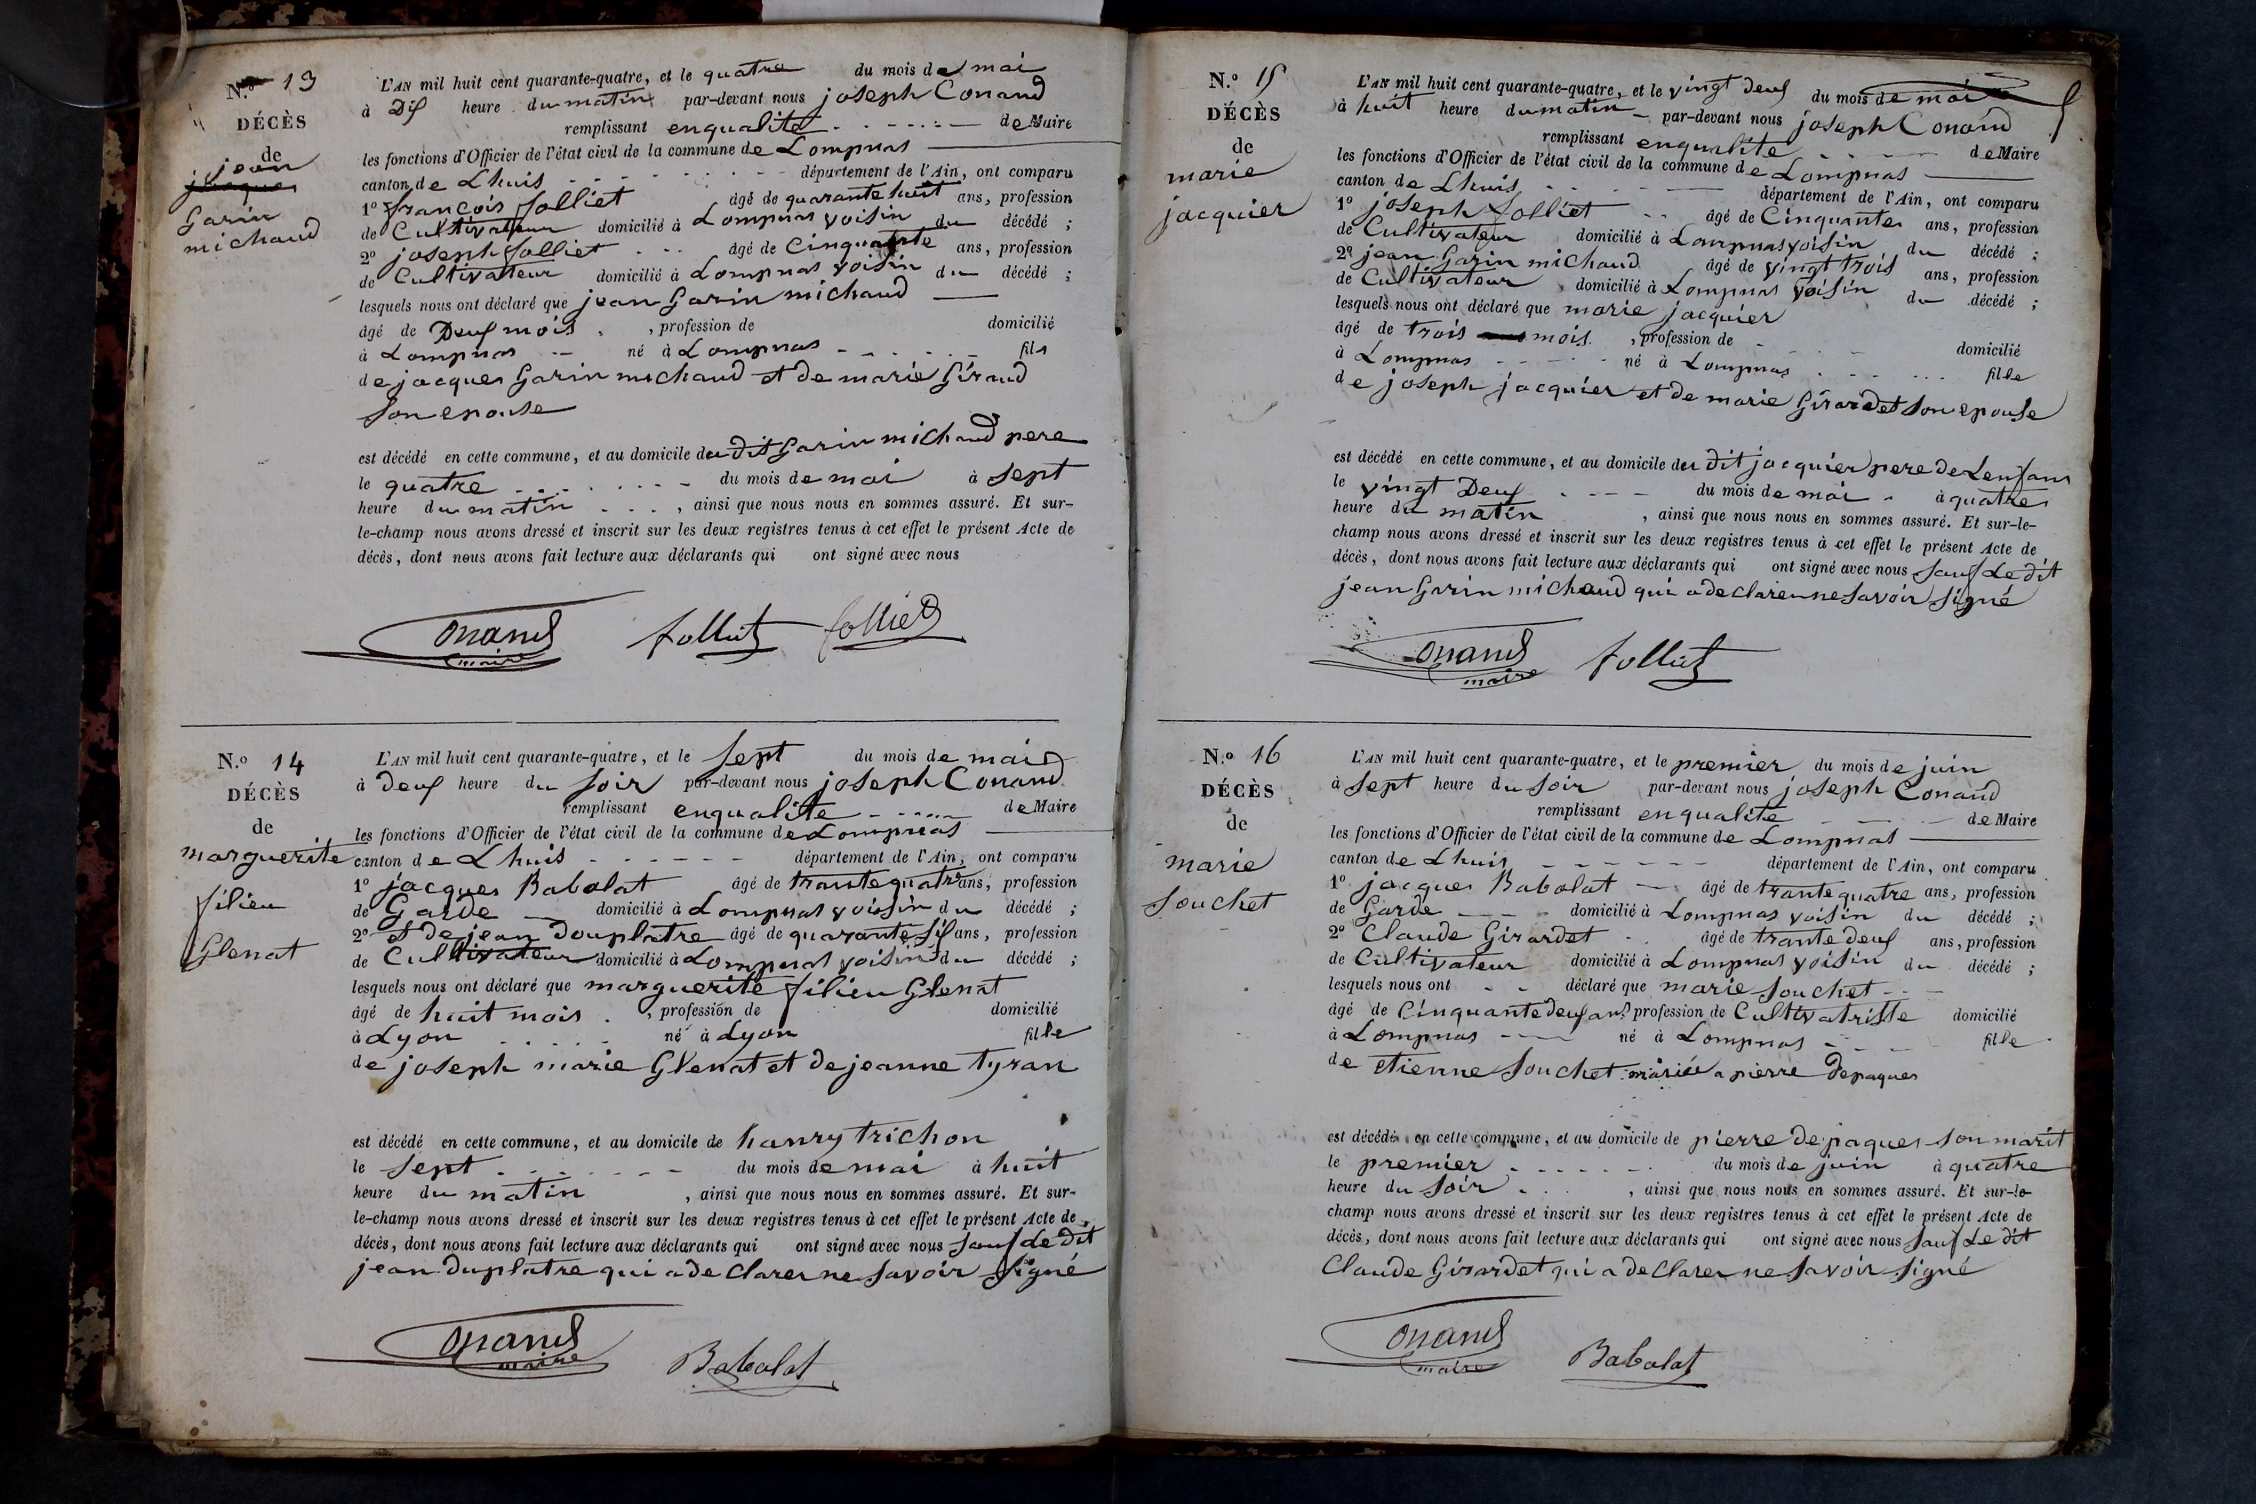 N.º 13
DÉCÈS
de
jean
jacques
Garin
michaud
L'AN mil huit cent quarante-quatre, et le quatre du mois de mai
à Dix heure du matin par-devant nous joseph Conand
remplissant enqualité de Maire
les fonctions d'Officier de l'état civil de la commune de Lompnas
canton de Lhuis département de l'Ain, ont comparu
1º françois folliet âgé de quarante huit ans, profession
de Cultivateur domicilié à Lompnas voisin du décédé ;
2º joseph folliet âgé de Cinquante ans, profession
de Cultivateur domicilié à Lompnas voisin du décédé ;
lesquels nous ont déclaré que jean Garin michaud
âgé de Deux mois , profession de domicilié
à Lompnas né à Lompnas fils
de jacques Garin michaud et de marie Giraud
son epouse
est décédé en cette commune, et au domicile du dit Garin michaud pere
le quatre du mois de mai à sept
heure du matin , ainsi que nous nous en sommes assuré. Et sur-
le-champ nous avons dressé et inscrit sur les deux registres tenus à cet effet le présent Acte de
décès, dont nous avons fait lecture aux déclarants qui ont signé avec nous
Conand folliet folliet
maire
N.º 14
DÉCÈS
de
marguerite
filieu
Glenat
L'AN mil huit cent quarante-quatre, et le sept du mois de mai
à deux heure du soir par-devant nous joseph Conand
remplissant enqualite de Maire
les fonctions d'Officier de l'état civil de la commune de Lompnas
canton de Lhuis département de l'Ain, ont comparu
1º jacques Babolat âgé de trante quatre ans, profession
de Garde domicilié à Lompnas voisin du décédé ;
2º et de jean douplatre âgé de quarante six ans, profession
de Cultivateur domicilié à Lompnas voisin du décédé ;
lesquels nous ont déclaré que marguerite filieu Glenat
âgé de huit mois , profession de domicilié
à Lyon né à Lyon fille
de joseph marie Glenat et de jeanne tyran
est décédé en cette commune, et au domicile de hanry trichon
le sept du mois de mai à huit
heure du matin , ainsi que nous nous en sommes assuré. Et sur-
le-champ nous avons dressé et inscrit sur les deux registres tenus à cet effet le présent Acte de
décès, dont nous avons fait lecture aux déclarants qui ont signé avec nous sauf Le dit
jean duplatre qui a de clarer ne savoir signé
Conand
maire Babolat
N.º 15
DÉCÈS
de
marie
jacquier
L'AN mil huit cent quarante-quatre, et le vingt deux du mois de mai
à huit heure du matin par-devant nous joseph Conand
remplissant enqualite de Maire
les fonctions d'Officier de l'état civil de la commune de Lompnas
canton de Lhuis département de l'Ain, ont comparu
1º joseph folliet âgé de Cinquante ans, profession
de Cultivateur domicilié à Lompnas voisin du décédé ;
2º jean Garin michaud âgé de vingt trois ans, profession
de Cultivateur domicilié à Lompnas voisin du décédé ;
lesquels nous ont déclaré que marie jacquier
âgé de trois mois , profession de domicilié
à Lompnas né à Lompnas fille
de joseph jacquier et de marie Girardet son epouse
est décédé en cette commune, et au domicile du dit jacquier pere de Lenfant
le vingt Deux du mois de mai à quatre
heure du matin , ainsi que nous nous en sommes assuré. Et sur-le-
champ nous avons dressé et inscrit sur les deux registres tenus à cet effet le présent Acte de
décès, dont nous avons fait lecture aux déclarants qui ont signé avec nous sauf Le dit
jean Garin michaud qui a de clarer ne savoir signé
Conand folliet
maire
N.º 16
DÉCÈS
de
marie
souchet
L'AN mil huit cent quarante-quatre, et le premier du mois de juin
à sept heure du soir par-devant nous joseph Conand
remplissant enqualite de Maire
les fonctions d'Officier de l'état civil de la commune de Lompnas
canton de Lhuis département de l'Ain, ont comparu
1º jacques Babolat âgé de trante quatre ans, profession
de Garde domicilié à Lompnas voisin du décédé ;
2º Claude Girardet âgé de trante deux ans, profession
de Cultivateur domicilié à Lompnas voisin du décédé ;
lesquels nous ont déclaré que marie souchet
âgé de Cinquante deux ans profession de Cultivatrisse domicilié
à Lompnas né à Lompnas fille
de etienne souchet mariée a pierre depaques
est décédé en cette commune, et au domicile de pierre de paques son marit
le premier du mois de juin à quatre
heure du soir , ainsi que nous nous en sommes assuré. Et sur-le-
champ nous avons dressé et inscrit sur les deux registres tenus à cet effet le présent Acte de
décès, dont nous avons fait lecture aux déclarants qui ont signé avec nous sauf Le dit
Claude Girardet qui a de Clarer ne savoir signé
Conand
maire Babolat